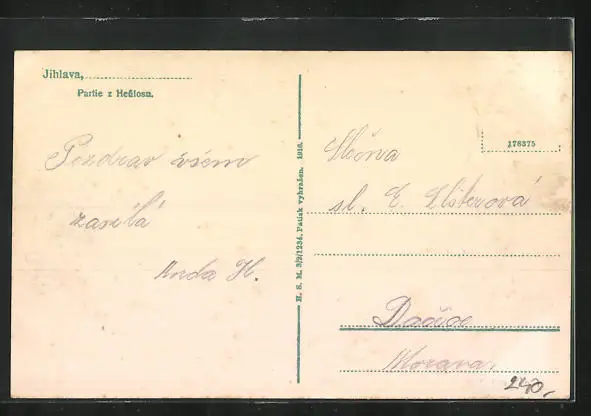 Jihlava,
Partie z Heůlosu.
Pozdrav všem
zasílá
Anda H.
H. S. M. 3/2/1234. Patisk vyhrašen. 1916.
178375
sl. E.
Dačice
Morava.
240,-